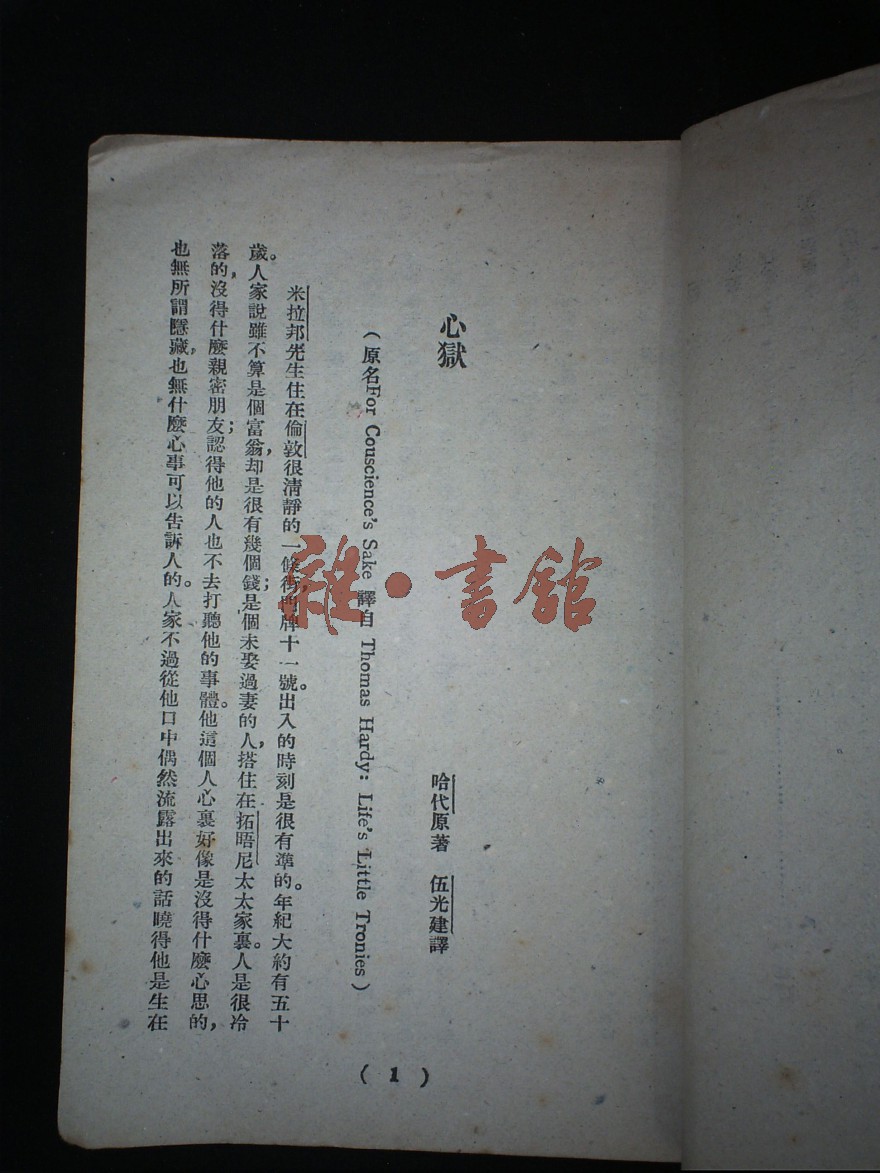 心獄
哈代原著 伍光建譯
(原名For Couscience's Sake 譯自 Thomas Hardy: Life's Little Tronies)
米拉邦先生住在倫敦很清靜的一條街,門牌十一號。出入的時刻是很有準的。年紀大約有五十
歲。人家說雖不算是個富翁,却是很有幾個錢;是個未娶過妻的人,搭住在拓晤尼太太家裏。人是很冷
落的,沒得什麼親密朋友;認得他的人也不去打聽他的事體。他這個人心裏好像是沒得什麼心思的,
也無所謂隱藏,也無什麼心事可以告訴人的。人家不過從他口中偶然流露出來的話曉得他是生在
(1)
雜·書館